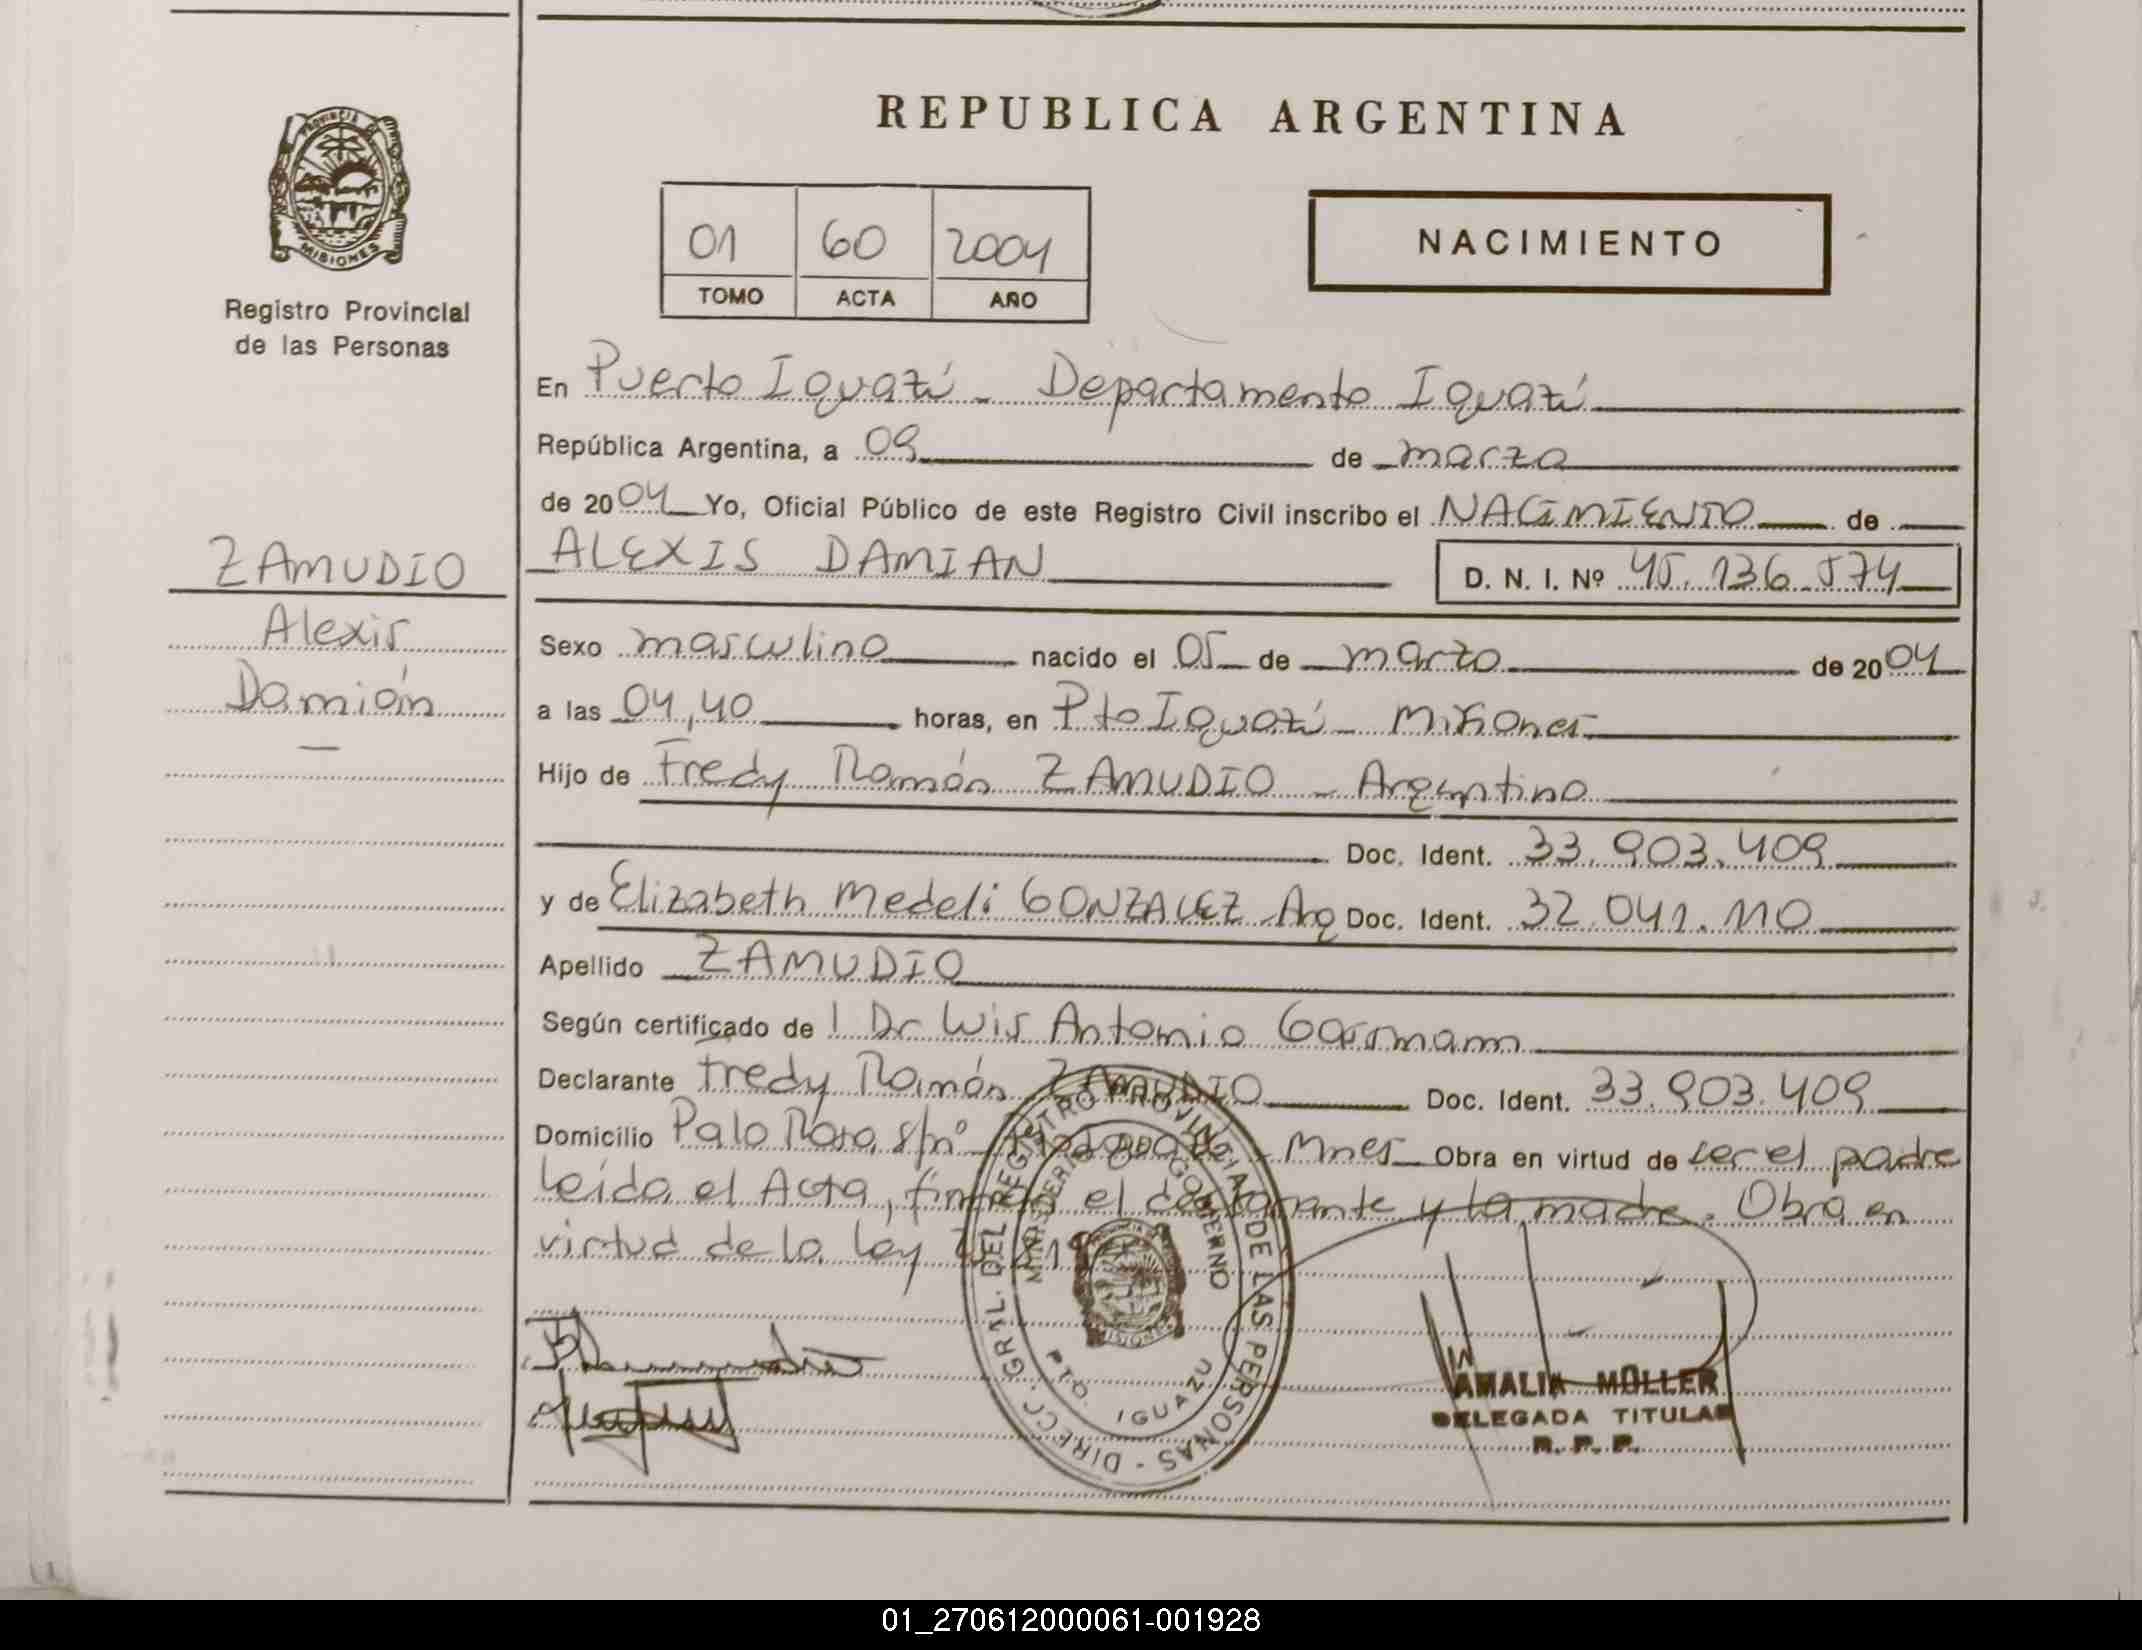 REPUBLICA ARGENTINA
PROVINCIA DE MISIONES
Registro Provincial
de las Personas
01 60 2004
TOMO ACTA AÑO
NACIMIENTO
En Puerto Iguazú - Departamento Iguazú
República Argentina, a 09 de marzo
de 2004 Yo, Oficial Público de este Registro Civil inscribo el NACIMIENTO de
ZAMUDIO
Alexis
Damián
ALEXIS DAMIAN D. N. I. Nº 45.136.574
Sexo masculino nacido el 05 de marzo de 2004
a las 04,40 horas, en Pto Iguazú - Misiones
Hijo de Fredy Ramón ZAMUDIO - Argentino
Doc. Ident. 33.903.409
y de Elizabeth Medeli GONZALEZ Arg Doc. Ident. 32.041.110
Apellido ZAMUDIO
Según certificado de l Dr Luis Antonio
Declarante Fredy Ramón ZAMUDIO Doc. Ident. 33.903.409
Domicilio Palo Rosa s/nº - Mnes Obra en virtud de ser el padre
Leida el Acta, firman el declarante y la madre. Obra en
virtud de la Ley
DIRECC. GRAL. DEL REGISTRO PROVINCIAL DE LAS PERSONAS
MINISTERIO DE GOBIERNO
PTO. IGUAZU
AMALIA MÜLLER
DELEGADA TITULAR
R. P. P.
01_270612000061-001928